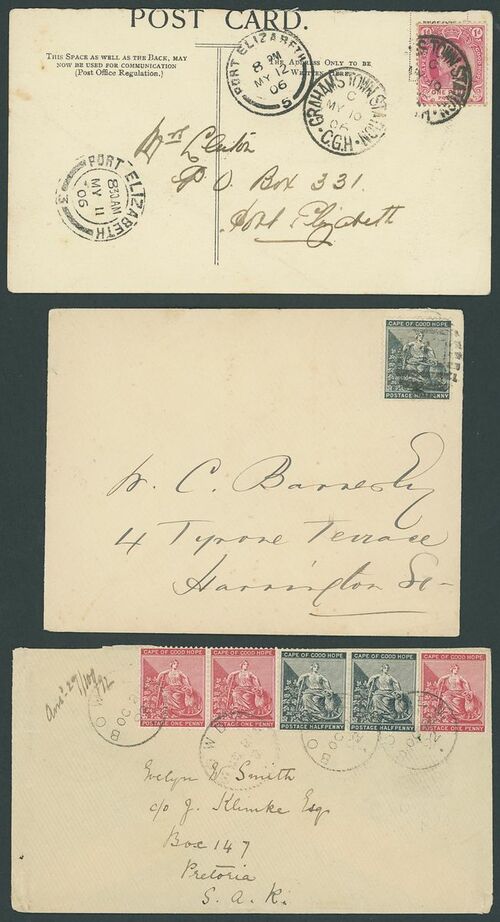 POST CARD.
THIS SPACE AS WELL AS THE BACK, MAY
NOW BE USED FOR COMMUNICATION
(Post Office Regulation.)
THE ADDRESS ONLY TO BE
WRITTEN HERE.
PORT ELIZABETH
8 PM
MY 12
06
5
GRAHAMSTOWN STATION
C
MY 10
06
C.G.H
PORT ELIZABETH
8 30 AM
MY 11
06
3
Mrs Clinton
P O Box 331
Port Elizabeth
CAPE OF GOOD HOPE
POSTAGE HALF PENNY
W. C. Barnesby
4 Tyrone Terrace
Harrington St
CAPE OF GOOD HOPE
CAPE OF GOOD HOPE
CAPE OF GOOD HOPE
CAPE OF GOOD HOPE
CAPE OF GOOD HOPE
POSTAGE ONE PENNY
POSTAGE ONE PENNY
POSTAGE HALF PENNY
POSTAGE HALF PENNY
POSTAGE ONE PENNY
Evelyn W Smith
c/o J. Klimke Esq
Box 147
Pretoria
S. A. R.